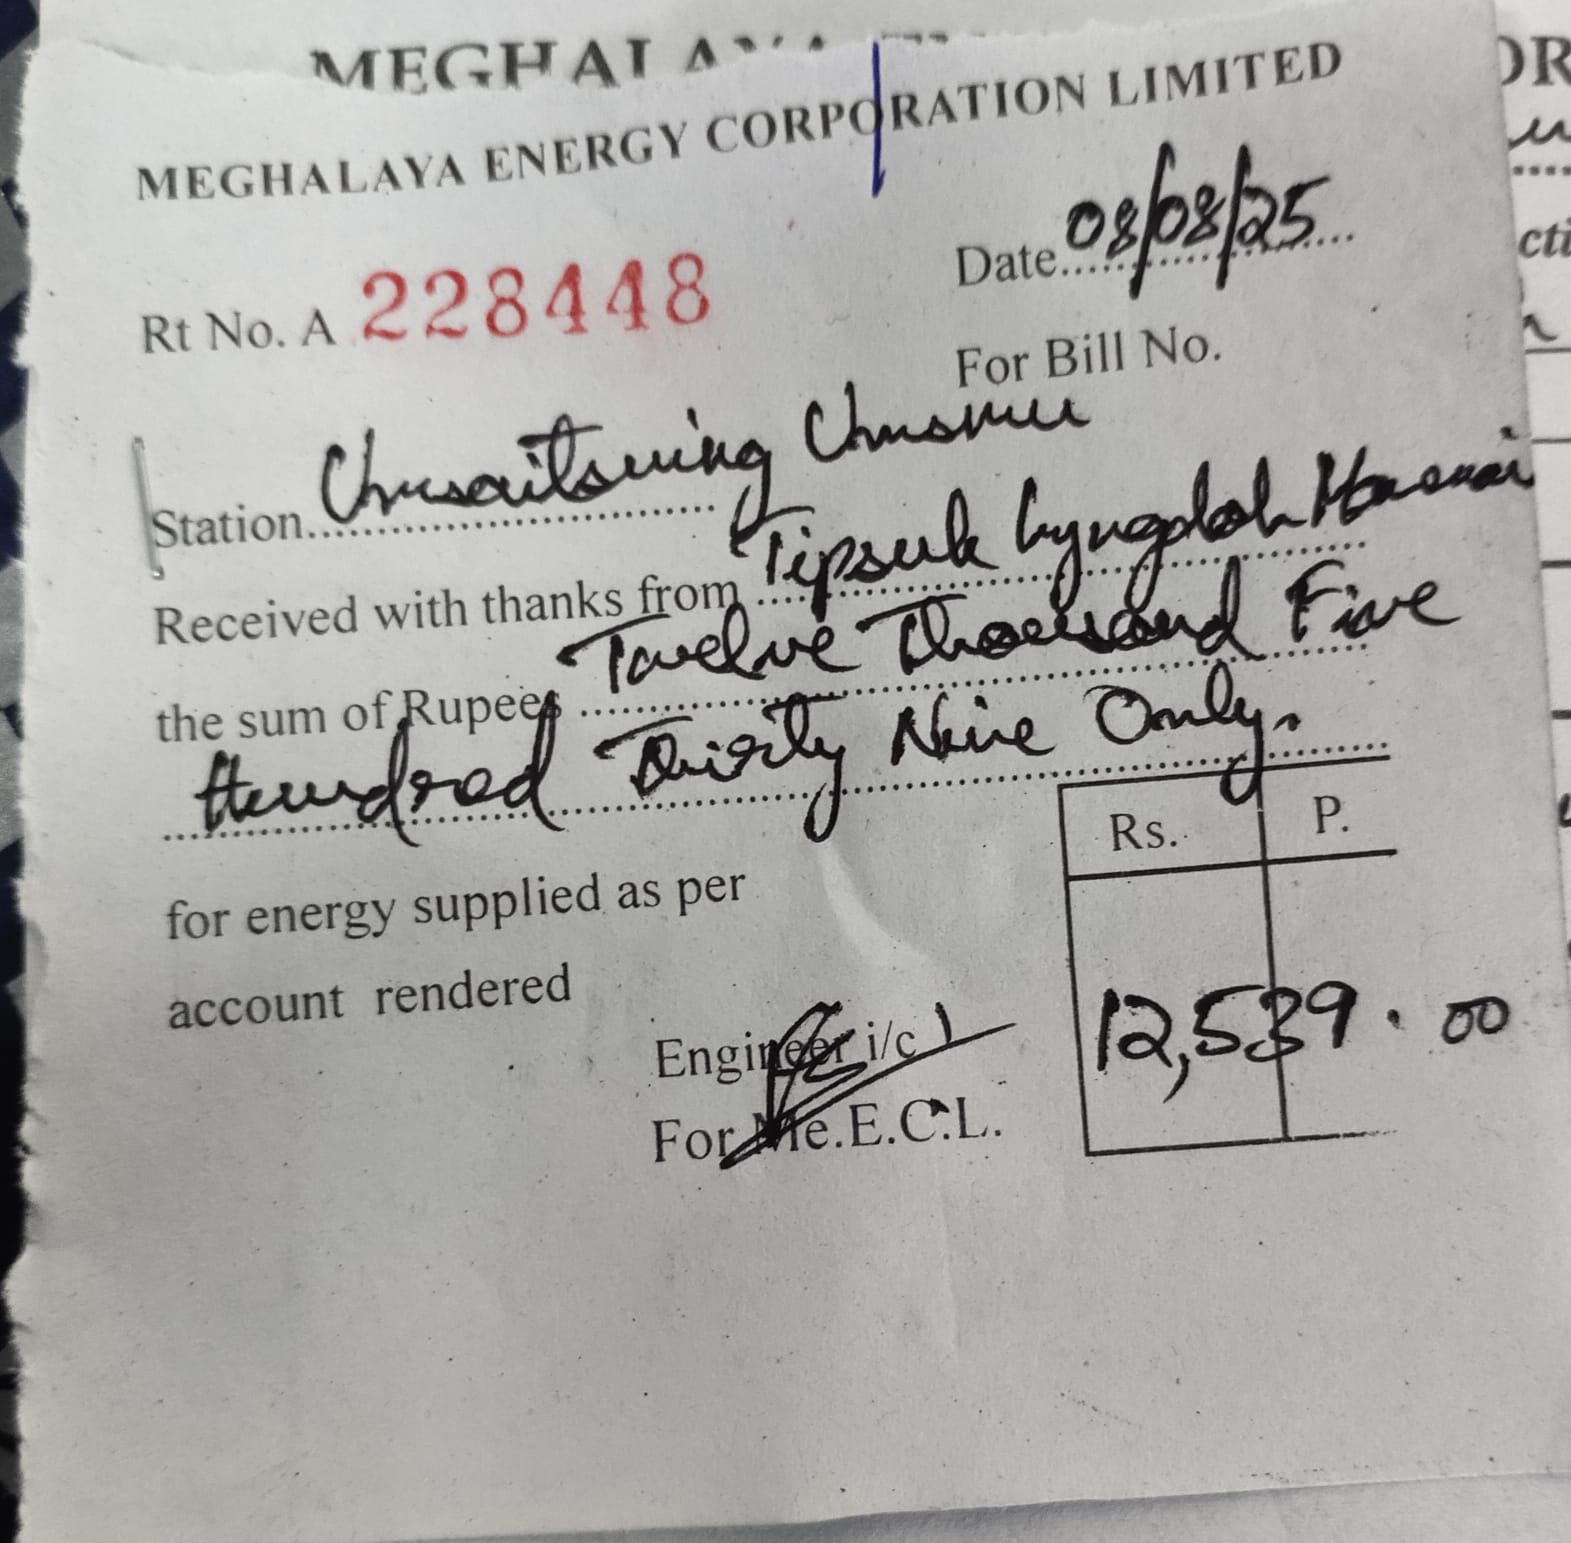 MEGHALAYA
MEGHALAYA ENERGY CORPORATION LIMITED
Date 08/08/25
Rt No. A 228448
For Bill No.
Station Umsaitsning Umsmu
Received with thanks from Tipsuk Lyngdoh
the sum of Rupees Twelve Thousand Five
Hundred Thirty Nine Only.
Rs. P.
for energy supplied as per
account rendered
12,539.00
Engineer i/c
For Me.E.C.L.
OR
cti